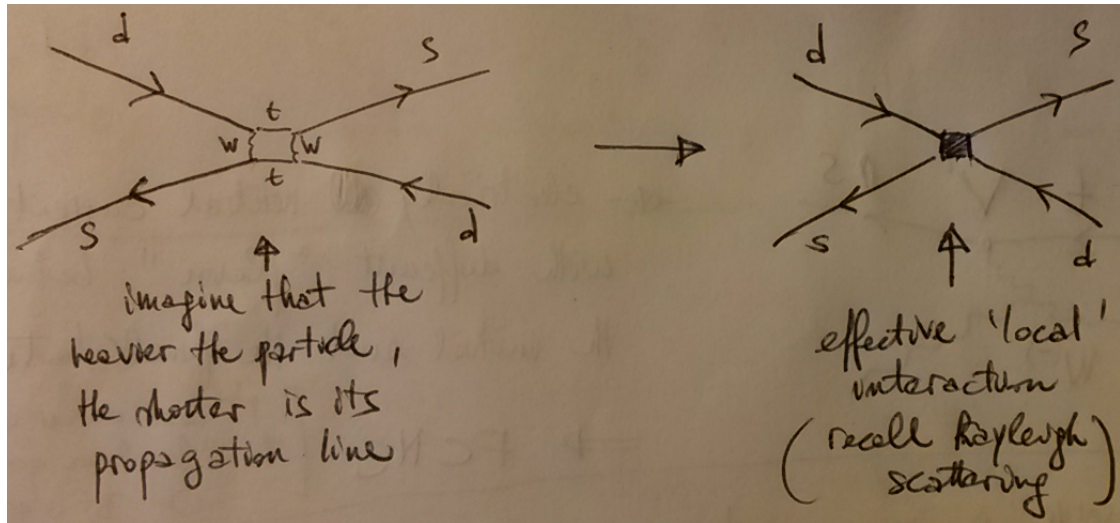 d
s
t
W
W
t
s
d
imagine that the
heavier the particle,
the shorter is its
propagation line
d
s
s
d
effective 'local'
interaction
(recall Rayleigh
scattering)